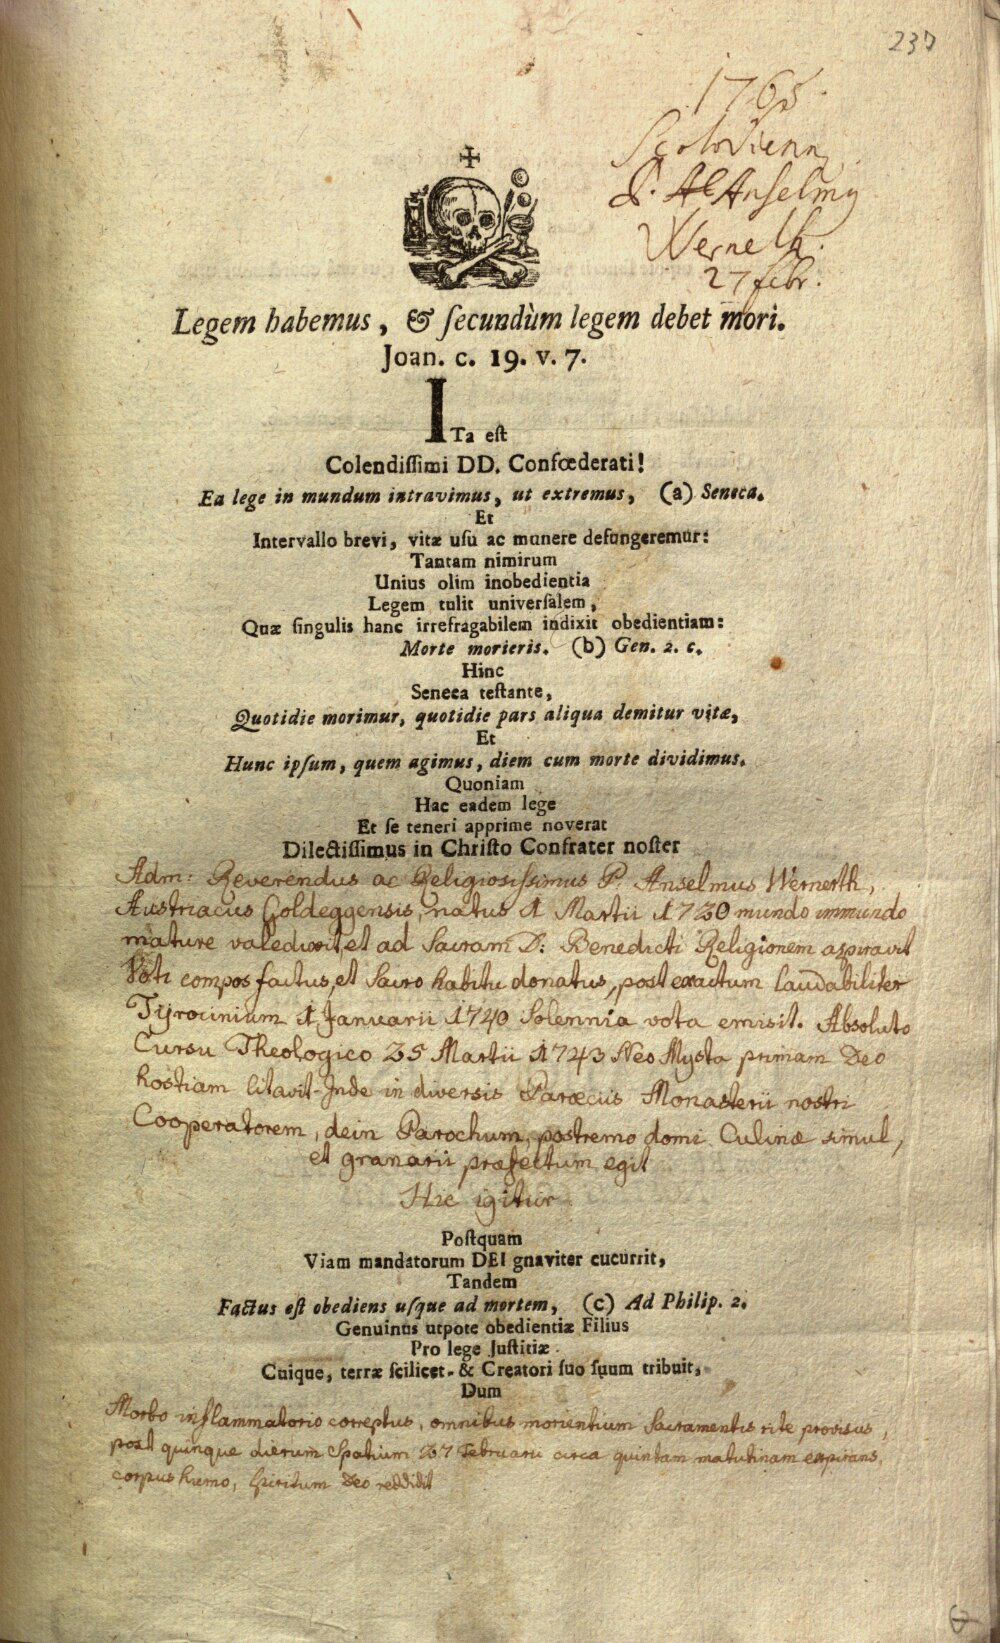 237
1765
Scotovienn
P. Anselmy
Werneth.
27 febr.
Legem habemus, & ſecundùm legem debet mori.
Joan. c. 19. v. 7.
ITa eſt
Colendiſſimi DD. Confœderati!
Ea lege in mundum intravimus, ut extremus, (a) Seneca.
Et
Intervallo brevi, vitæ uſu ac munere defungeremur:
Tantam nimirum
Unius olim inobedientia
Legem tulit univerſalem,
Quæ ſingulis hanc irrefragabilem indixit obedientiam:
Morte morieris. (b) Gen. 2. c.
Hinc
Seneca teſtante,
Quotidie morimur, quotidie pars aliqua demitur vitæ,
Et
Hunc ipſum, quem agimus, diem cum morte dividimus.
Quoniam
Hac eadem lege
Et ſe teneri apprime noverat
Dilectiſſimus in Chriſto Confrater noſter
Adm: Reverendus ac Religiosissimus P. Anselmus Wernerth,
Austriacus Goldeggensis, natus 1 Martii 1720 mundo immundo
mature valedixit, et ad Sacram D: Benedicti Religionem aspiravit
Voti compos factus, et Sacro habitu donatus, post exactum laudabiliter
Tyrocinium 1 Januarii 1740 Solennia vota emisit. Absoluto
Cursu Theologico 25 Martii 1743 Neo Mysta primam Deo
hostiam litavit. Inde in diversis Paroeciis Monasterii nostri
Cooperatorem, dein Parochum, postremo domi Culinæ simul,
et granarii præfectum egit
Hic igitur
Poſtquam
Viam mandatorum DEI gnaviter cucurrit,
Tandem
Factus eſt obediens uſque ad mortem, (c) Ad Philip. 2.
Genuinus utpote obedientiæ Filius
Pro lege Juſtitiæ
Cuique, terræ ſcilicet & Creatori ſuo ſuum tribuit,
Dum
Morbo inflammatorio correptus, omnibus morientium Sacramentis rite provisus,
post quinque dierum Spatium 27 Februarii circa quintam matutinam expirans,
corpus humo, Spiritum Deo reddidit